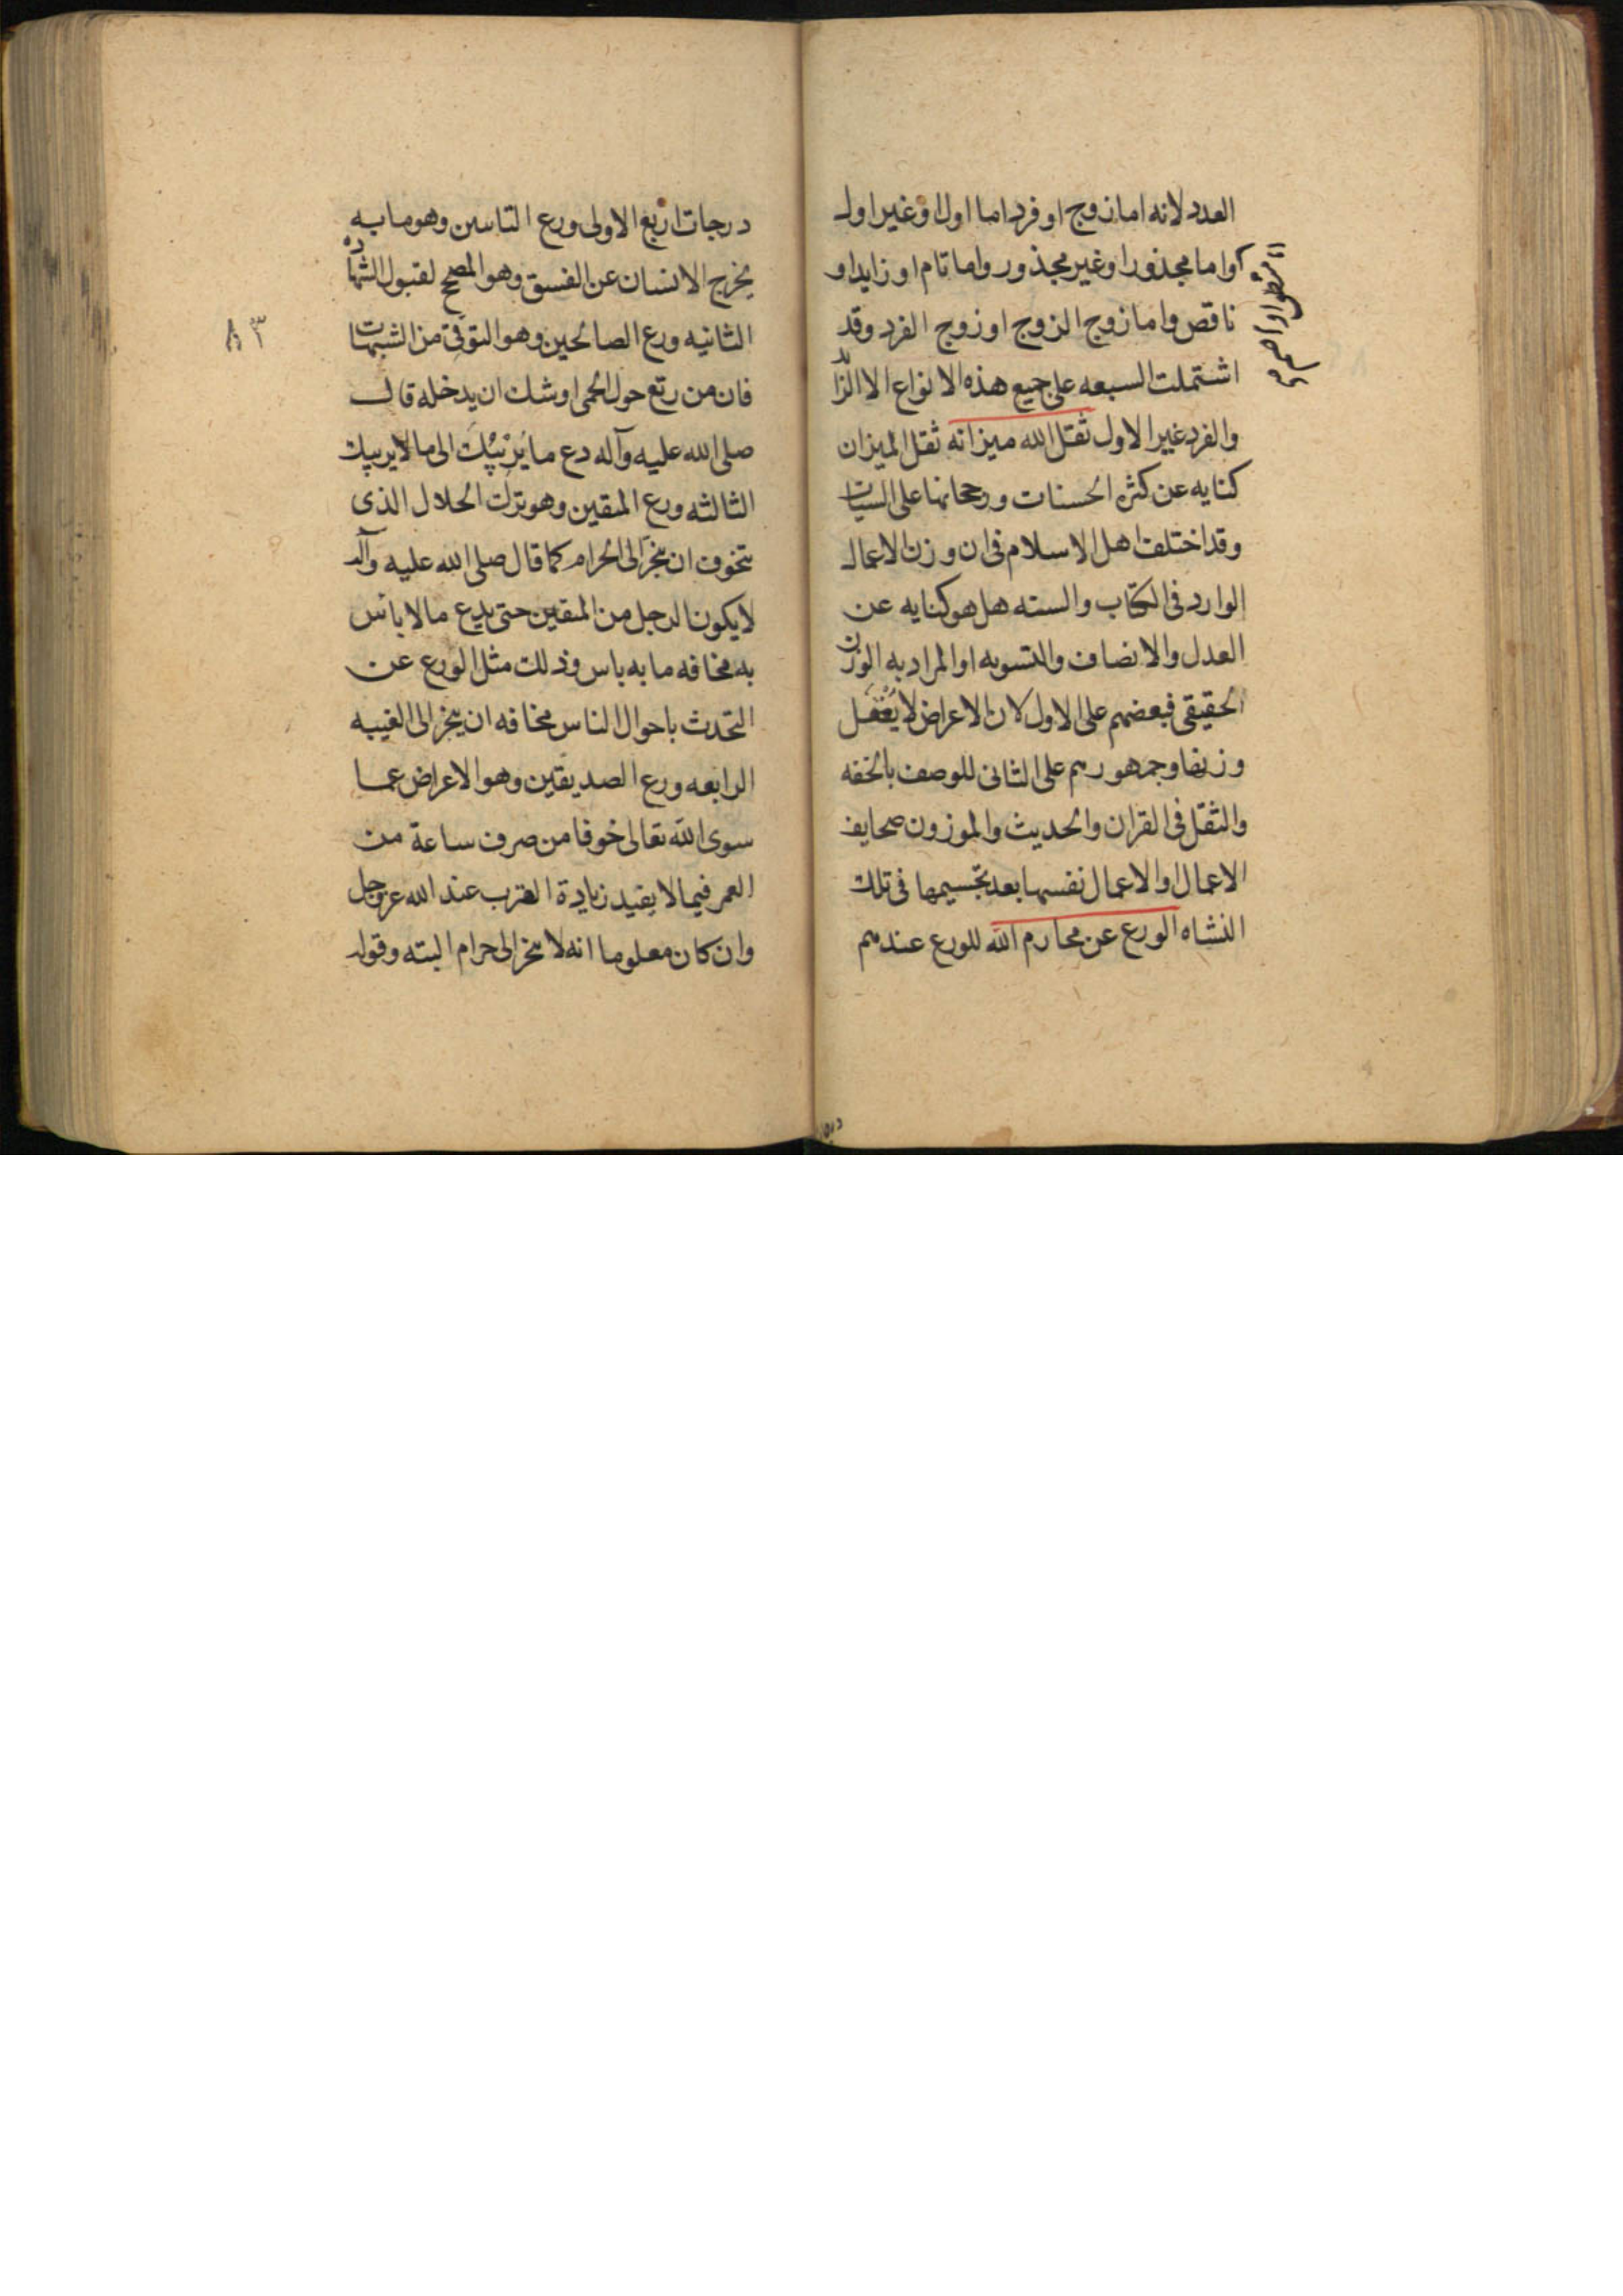 العدد لانه اما زوج او فرد اما اول او غير اول
واما مجذور او غير مجذور واما تام او زايد او
ناقص واما زوج الزوج او زوج الفرد وقد
اشتملت السبعه على جميع هذه الانواع الا الزائد
والفرد غير الاول ثقل الله ميزانه ثقل الميزان
كنايه عن كثره الحسنات ورجحانها على السيات
وقد اختلف اهل الاسلام فى ان وزن الاعمال
الوارد فى الكتاب والسنه هل هو كنايه عن
العدل والانصاف والتسويه او المراد به الوزن
الحقيقى فبعضهم على الاول لان الاعراض لا يعقل
وزنها وجمهورهم على الثانى للوصف بالخفه
والثقل فى القران والحديث والموزون صحايف
الاعمال او الاعمال نفسها بعد تجسيمها فى تلك
النشاه الورع عن محارم الله للورع عندهم
درجات اربع الاولى ورع التاسين وهو ما به
يخرج الانسان عن الفسق وهو المصحح لقبول الشهادة
الثانيه ورع الصالحين وهو التوقى من الشبهات
فان من رتع حول الحمى اوشك ان يدخله قال
صلى الله عليه وآله دع ما يريبك الى ما لا يريبك
الثالثه ورع المتقين وهو ترك الحلال الذى
يتخوف ان ينجر الى الحرام كما قال صلى الله عليه وآله
لا يكون الرجل من المتقين حتى يدع ما لا بأس
به مخافه ما به باس وذلك مثل الورع عن
التحدث باحوال الناس مخافه ان ينجر الى الغيبه
الرابعه ورع الصديقين وهو الاعراض عما
سوى الله تعالى خوفا من صرف ساعة من
العمر فيما لا يفيد زيادة القرب عند الله عز وجل
وان كان معلوما انه لا ينجر الى حرام البته وقوله
٨٣